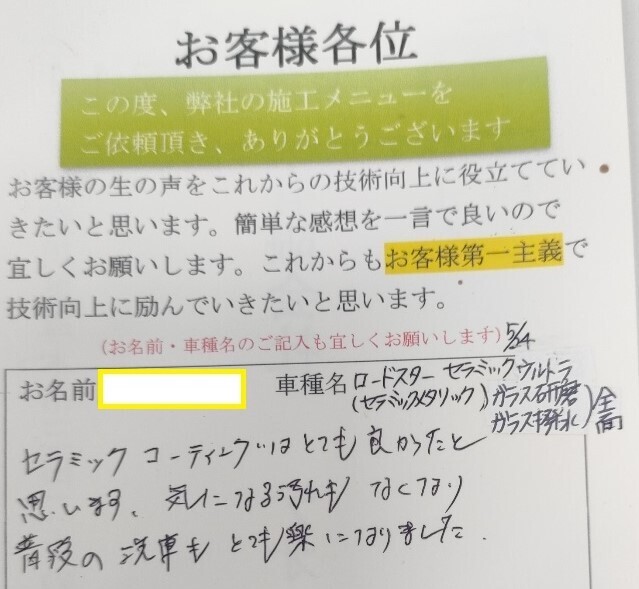 お客様各位
この度、弊社の施工メニューを
ご依頼頂き、ありがとうございます
お客様の生の声をこれからの技術向上に役立ててい
きたいと思います。簡単な感想を一言で良いので
宜しくお願いします。これからもお客様第一主義で
技術向上に励んでいきたいと思います。
(お名前・車種名のご記入も宜しくお願いします) 5/24
お名前 車種名 ロードスター セラミックウルトラ
(セラミックメタリック) ガラス研磨
ガラス撥水 全面
セラミック コーティングはとても良かったと
思います、気になる汚れも なくなり
普段の洗車も とても楽になりました.